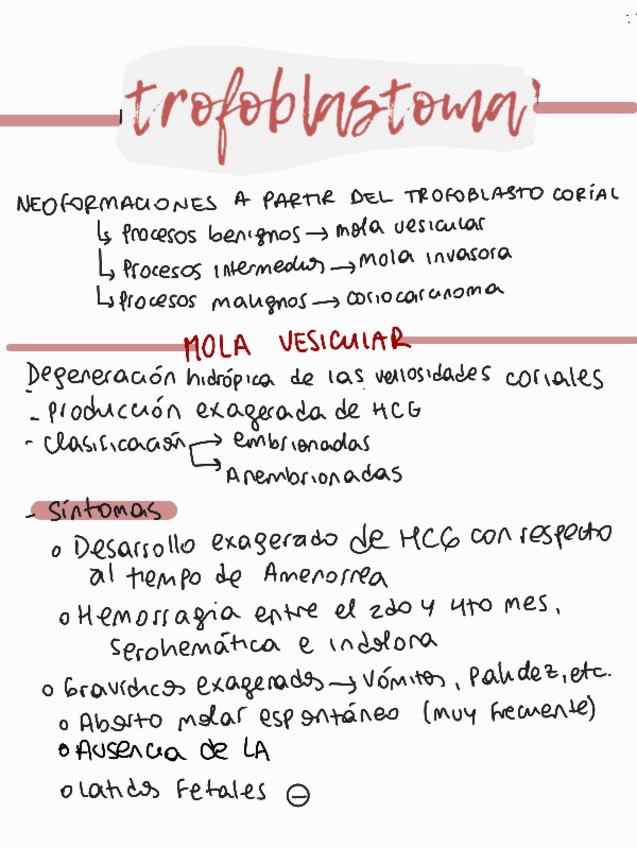 trofoblastoma
NEOFORMACIONES A PARTIR DEL TROFOBLASTO CORIAL
↳ Procesos benignos → mola vesicular
↳ Procesos intermedios → mola invasora
↳ Procesos malignos → coriocarcinoma
MOLA VESICULAR
Degeneración hidrópica de las vellosidades coriales
- Producción exagerada de HCG
- Clasificación → embrionadas
→ Anembrionadas
- Síntomas
o Desarrollo exagerado de HCG con respecto
al tiempo de Amenorrea
o Hemorragia entre el 2do y 4to mes,
serohemática e indolora
o Gravídicos exagerados → Vómitos, Palidez, etc.
o Aborto molar espontáneo (muy frecuente)
o Ausencia de LA
o Latidos Fetales ⊖